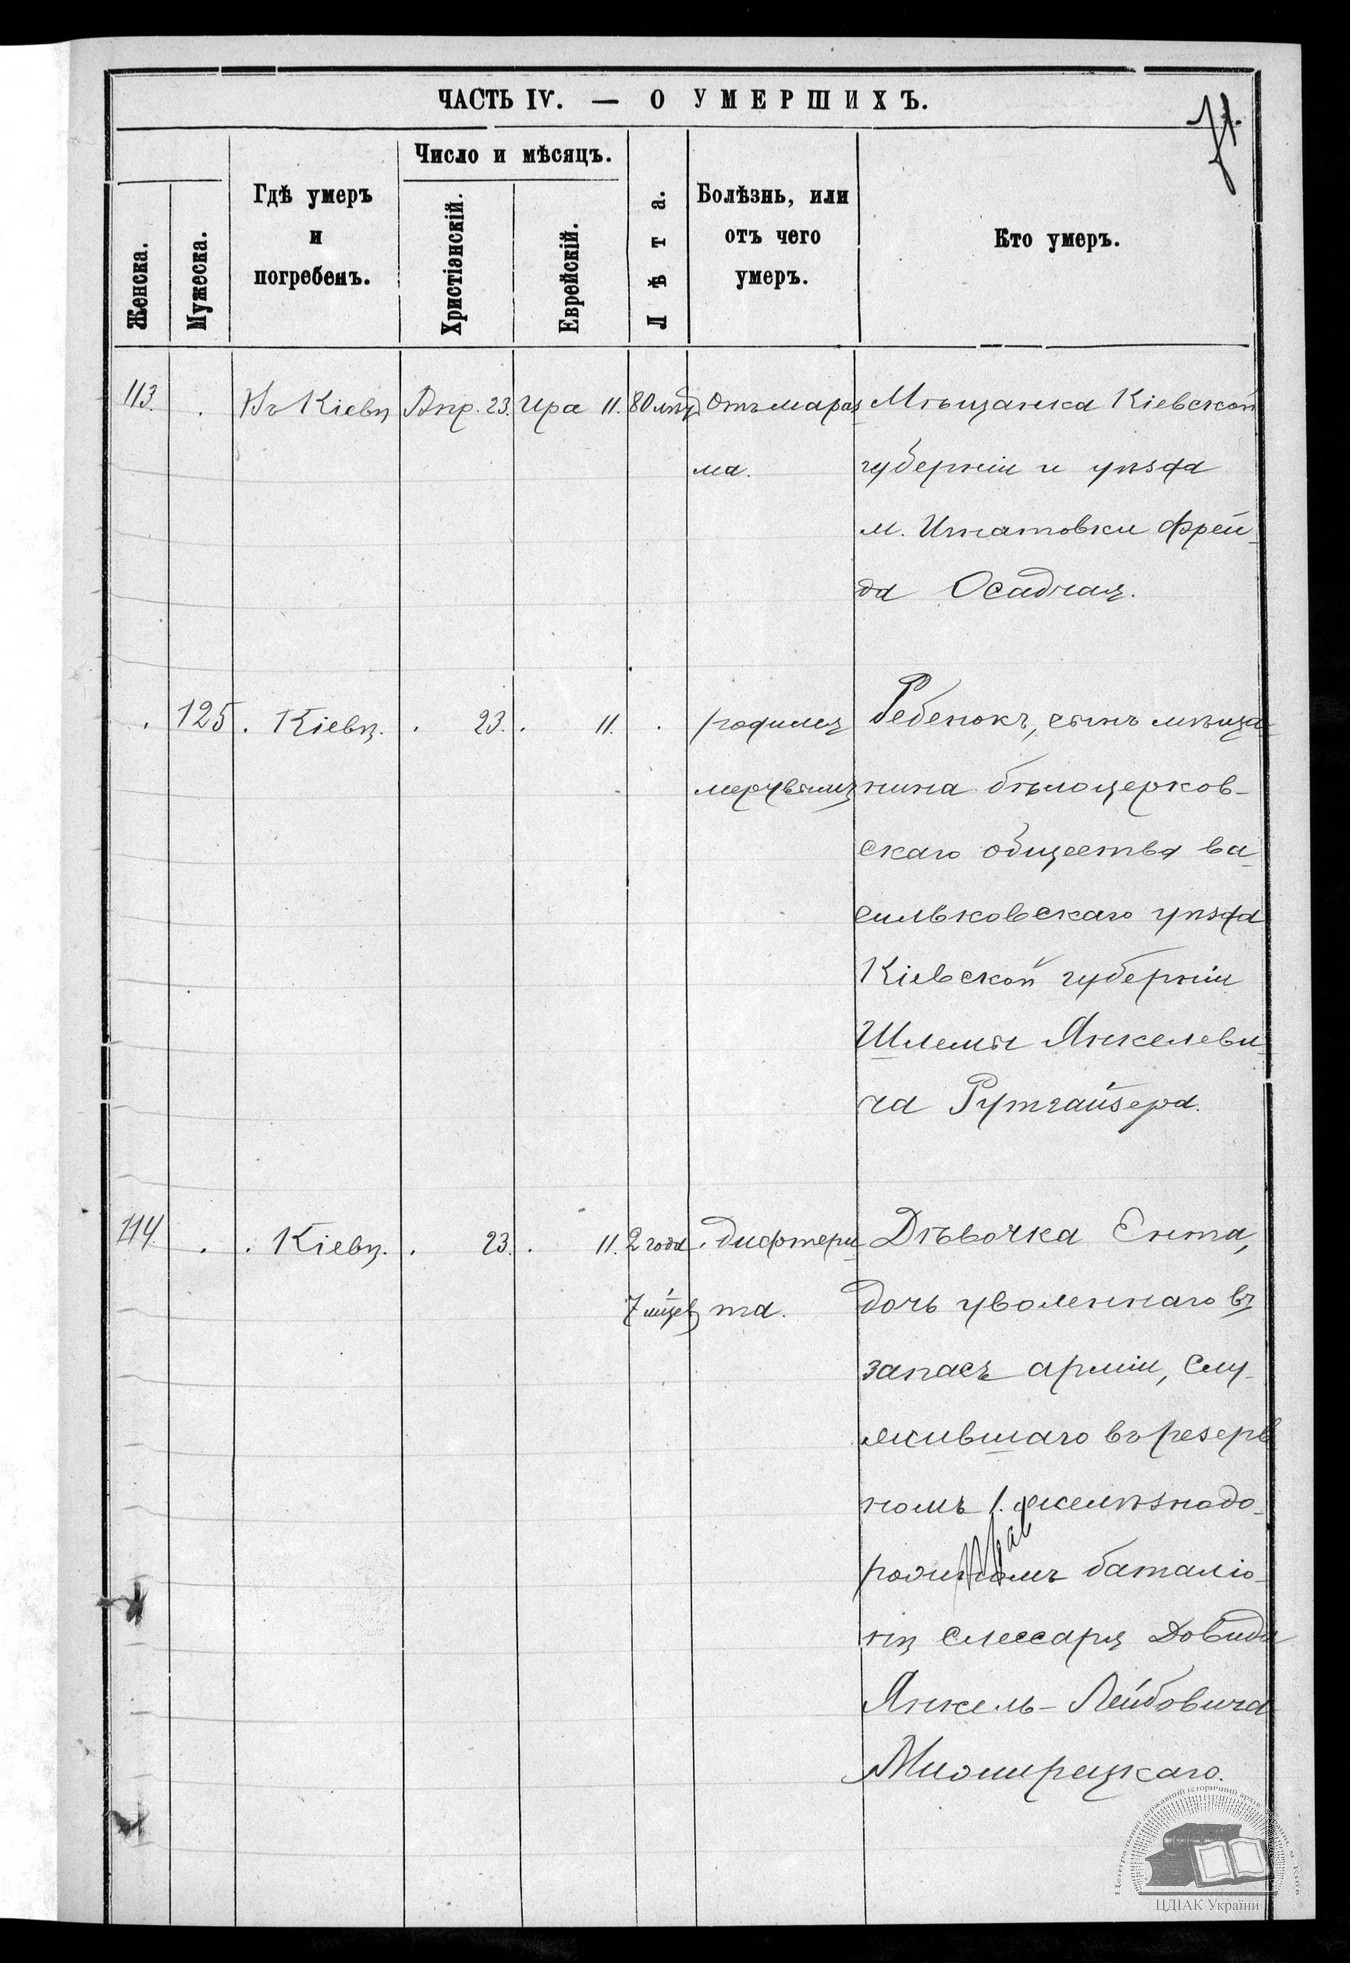 ЧАСТЬ IV. — О УМЕРШИХЪ.
71.
Женска.
Мужеска.
Гдѣ умеръ
и
погребенъ.
Число и мѣсяцъ.
Христіэнскій.
Еврейскій.
Лѣта.
Болѣзнь, или
отъ чего
умеръ.
Кто умеръ.
113. . Въ Кіевѣ Апр. 23. Ира 11. 80 лѣтъ Отъ мараз Мѣщанка Кіевской
ма. губерніи и уѣзда
м. Игнатовки Фрей-
да Осадчая.
. 125 . Кіевѣ. . 23. . 11. . родился Ребенокъ, сынъ мѣща-
мертвымъ нина бѣлоцерков-
скаго общества ва-
сильковскаго уѣзда
Кіевской губерніи
Шлемы Янкелеви-
ча Рутгайзера.
114. . . Кіевѣ. . 23. . 11. 2 года . дифтери Дѣвочка Ента,
7 мѣсяц та. дочь уволеннаго въ
запасъ арміи, слу-
жившаго въ резерв
номъ 1. желѣзнодо-
рожномъ баталіо-
нѣ слессаря Довида
Янкель-Лейбовича
ЦДІАК України